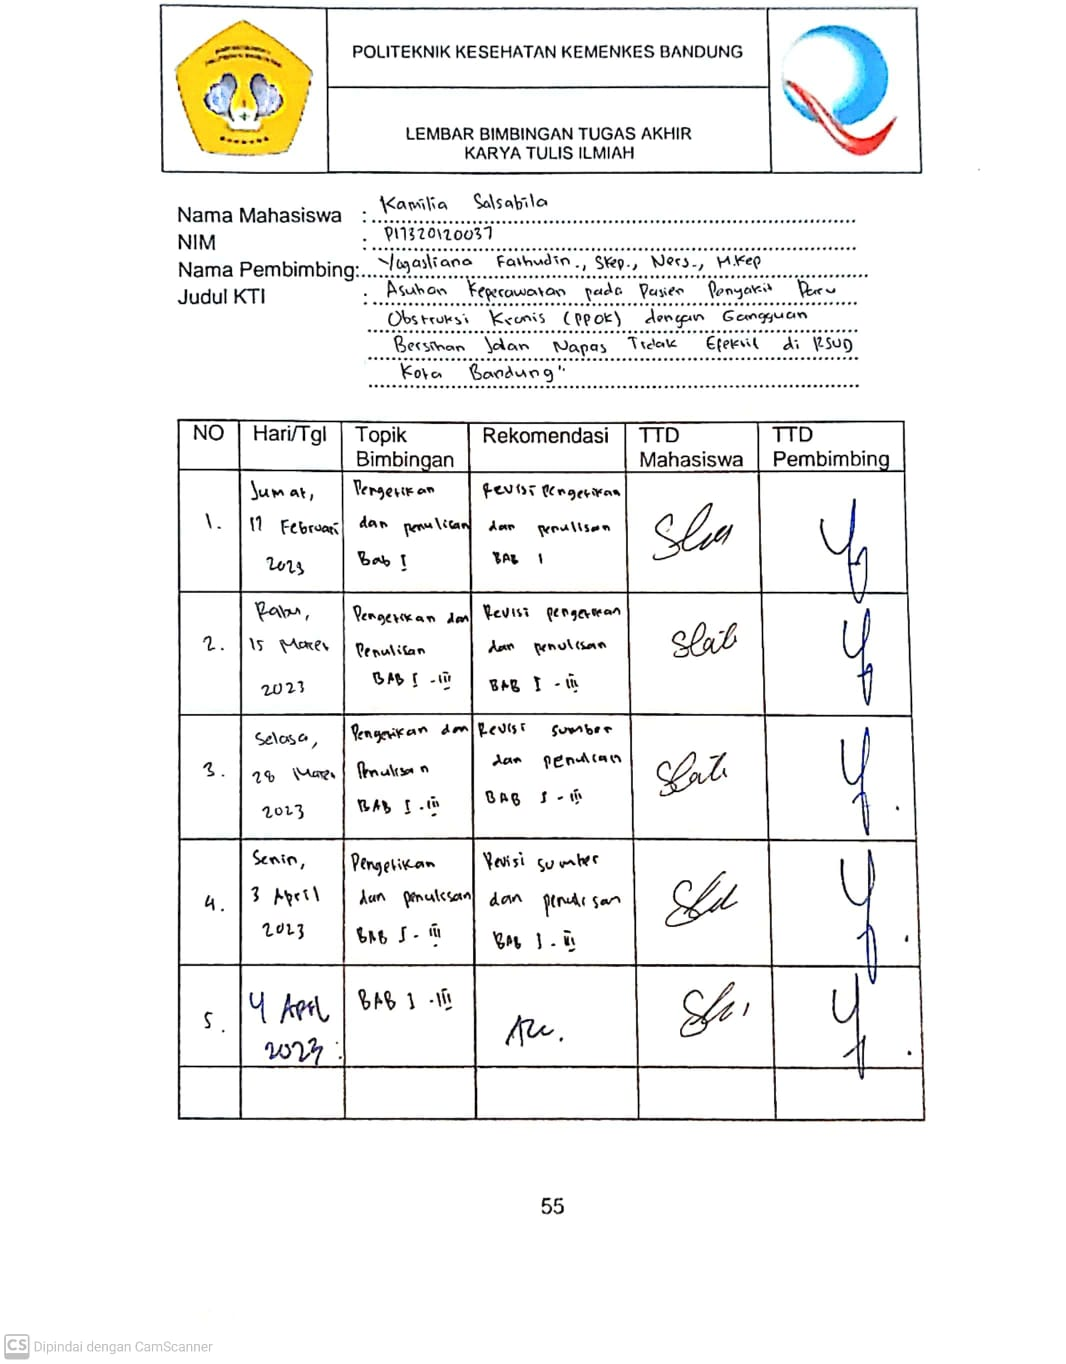 POLITEKNIK KESEHATAN KEMENKES BANDUNG
LEMBAR BIMBINGAN TUGAS AKHIR
KARYA TULIS ILMIAH
Nama Mahasiswa : Kamilia Salsabila
NIM : P17320120037
Nama Pembimbing: Yogasliana Fathudin., Skep., Ners., M.Kep
Judul KTI : Asuhan Keperawatan pada Pasien Penyakit Paru
Obstruksi Kronis (PPOK) dengan Gangguan
Bersihan Jalan Napas Tidak Efektif di RSUD
Kota Bandung"
NO Hari/Tgl Topik Bimbingan Rekomendasi TTD Mahasiswa TTD Pembimbing
1. Jumat, 17 Februari 2023 Pengetikan dan penulisan Bab I Revisi pengetikan dan penulisan BAB I
2. Rabu, 15 Maret 2023 Pengetikan dan Penulisan BAB I - III Revisi pengetikan dan penulisan BAB I - III
3. Selasa, 28 Maret 2023 Pengetikan dan Penulisan BAB I - III Revisi sumber dan penulisan BAB I - III
4. Senin, 3 April 2023 Pengetikan dan penulisan BAB I - III Revisi sumber dan penulisan BAB I - III
5. 4 April 2023 BAB I - III Acc.
55
CS Dipindai dengan CamScanner